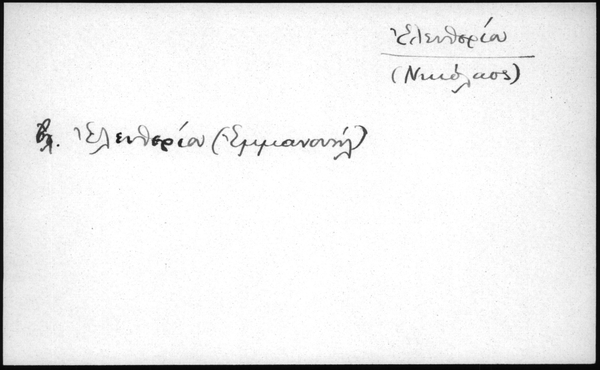 Ἐλευθερίου
(Νικόλαος)
βλ. Ἐλευθερίου (Ἐμμανουήλ)